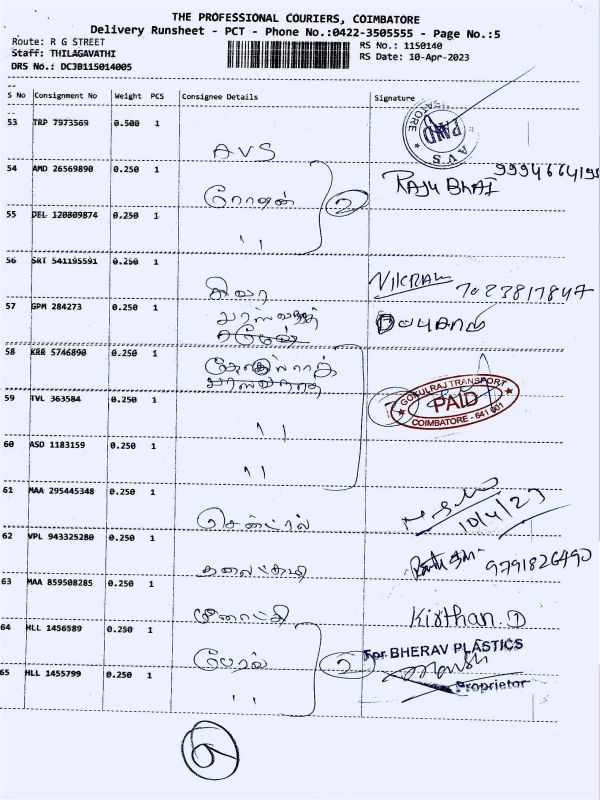 THE PROFESSIONAL COURIERS, COIMBATORE
Delivery Runsheet - PCT - Phone No.:0422-3505555 - Page No.:5
Route: R G STREET
Staff: THILAGAVATHI
DRS No.: DCJB115014005
RS No.: 1150140
RS Date: 10-Apr-2023
S No Consignment No Weight PCS Consignee Details Signature
53 TRP 7973569 0.500 1
AVS
PAID
A.V.S.
54 AMD 26569890 0.250 1
ரோஷன் 2 RAJU BHAI
55 DEL 120809874 0.250 1
" 
56 SRT 541195591 0.250 1
சிவா VIKRAM 7023817847
57 GPM 284273 0.250 1
58 KRR 5746890 0.250 1
59 TVL 363584 0.250 1
"
GOKULRAJ TRANSPORT
PAID
COIMBATORE - 641 001
60 ASD 1183159 0.250 1
"
61 MAA 295445348 0.250 1
சென்ட்ரல் 10/4/23
62 VPL 943325280 0.250 1
9791826490
63 MAA 859508285 0.250 1
மீனாட்சி Kirthan.D
64 HLL 1456589 0.250 1
2 For BHERAV PLASTICS
Proprietor
65 HLL 1455799 0.250 1
"